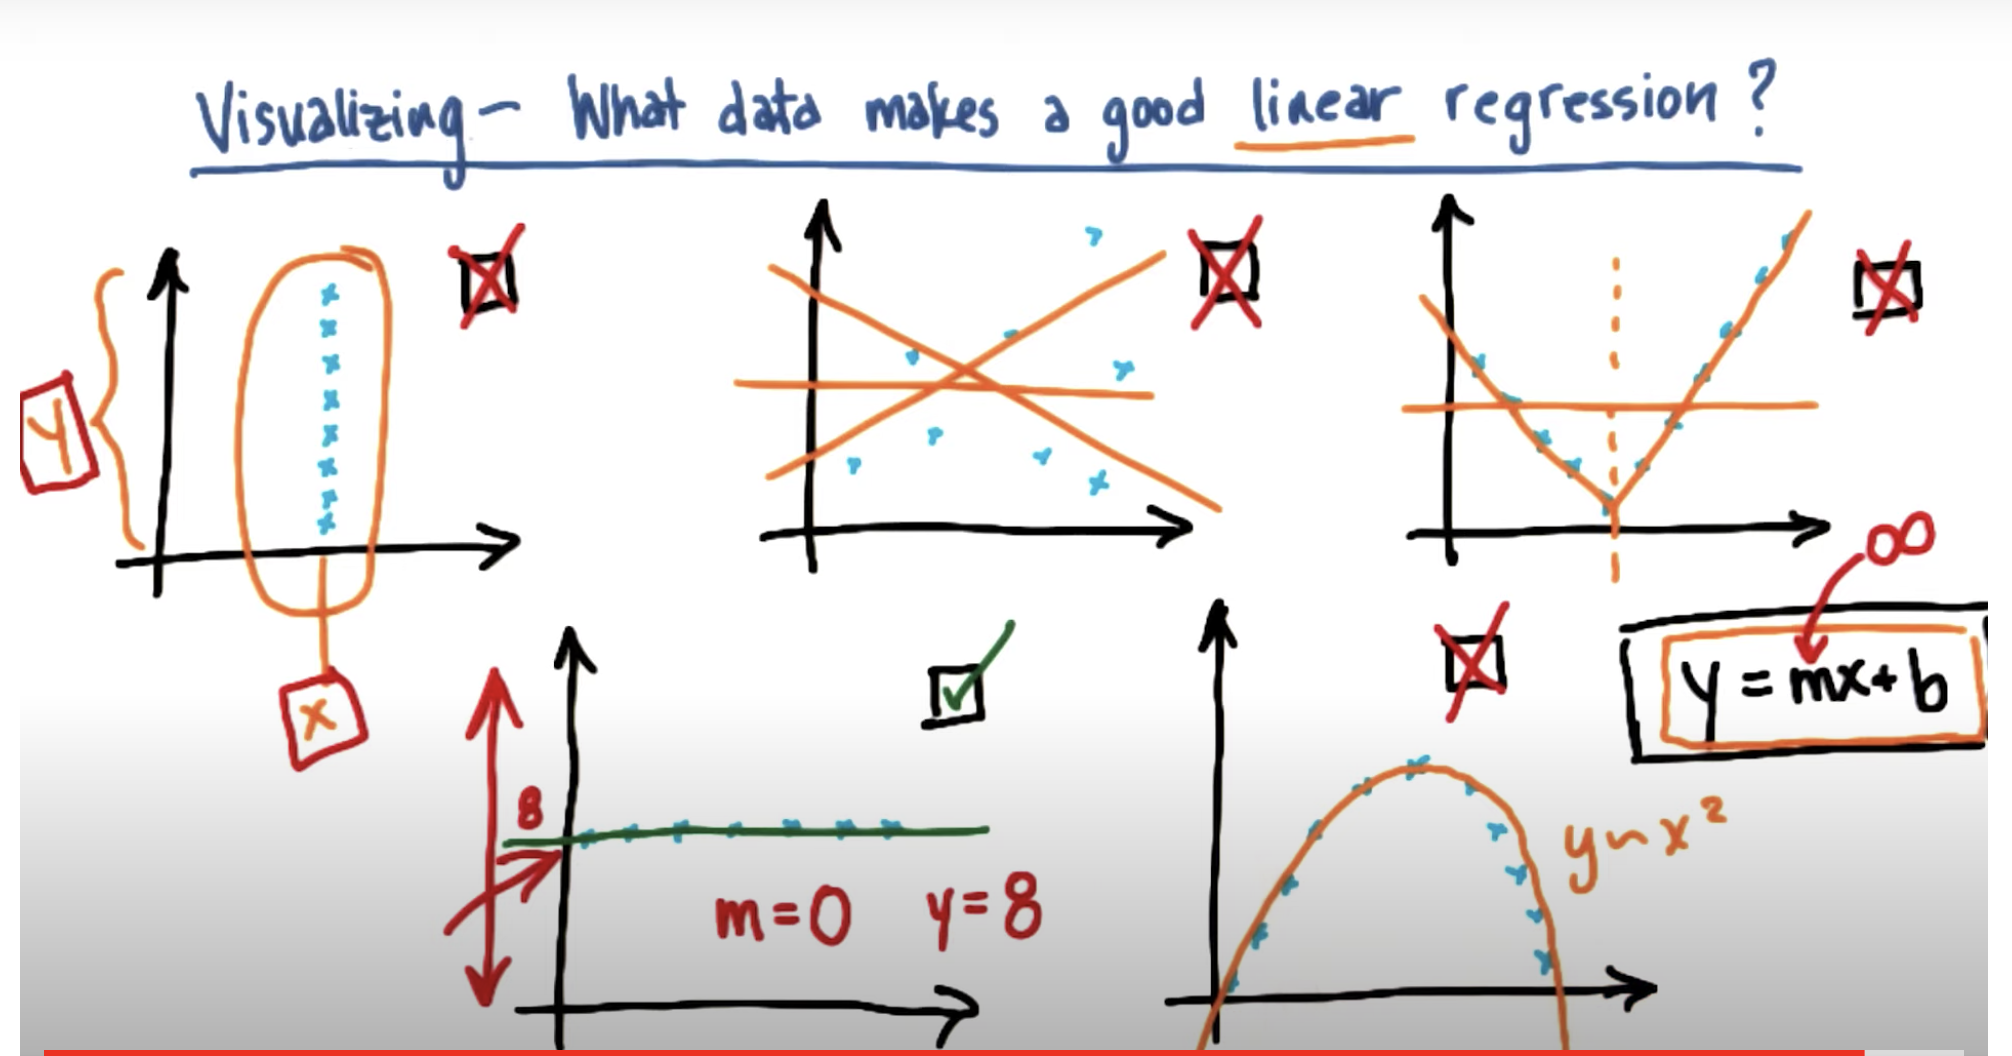 Visualizing – What data makes a good linear regression?
Y
x
∞
y = mx + b
8
m=0 y=8
y~x²